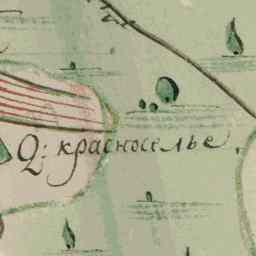 Q: красноселье.